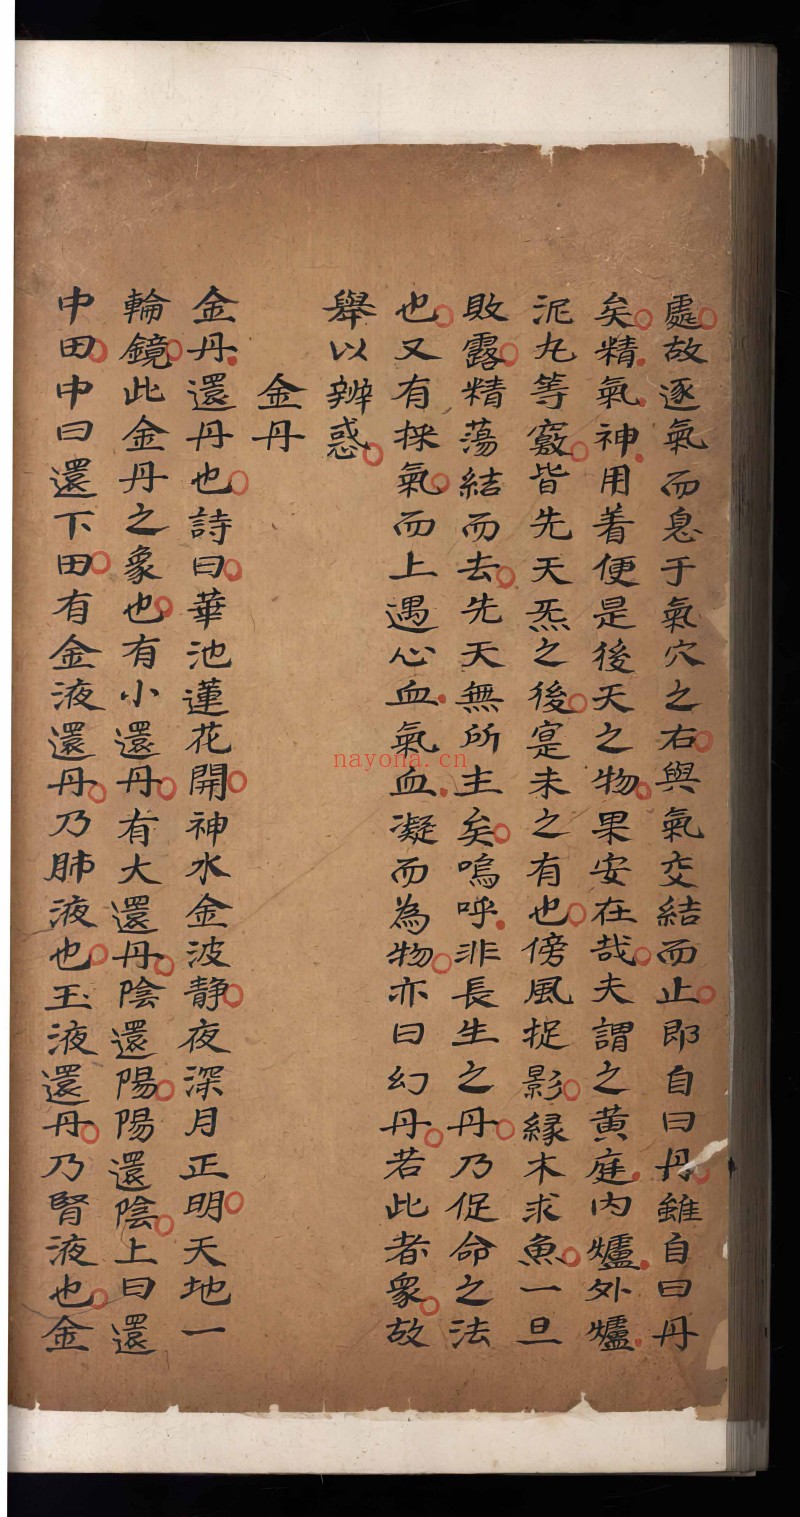 處故逐氣而息于氣穴之右與氣交結而止即自曰丹雖自曰丹
矣精氣神用着便是後天之物果安在哉夫謂之黄庭内爐外爐
泥丸等竅皆先天炁之後寔未之有也傍風捉影緣木求魚一旦
敗露精蕩結而去先天無所主矣嗚呼非長生之丹乃促命之法
也又有採氣而上遇心血氣血凝而為物亦曰幻丹若此者衆故
舉以辨惑
金丹
金丹還丹也詩曰華池蓮花開神水金波静夜深月正明天地一
輪鏡此金丹之象也有小還丹有大還丹陰還陽陽還陰上曰還
中田中曰還下田有金液還丹乃肺液也玉液還丹乃腎液也金
nayona.cn